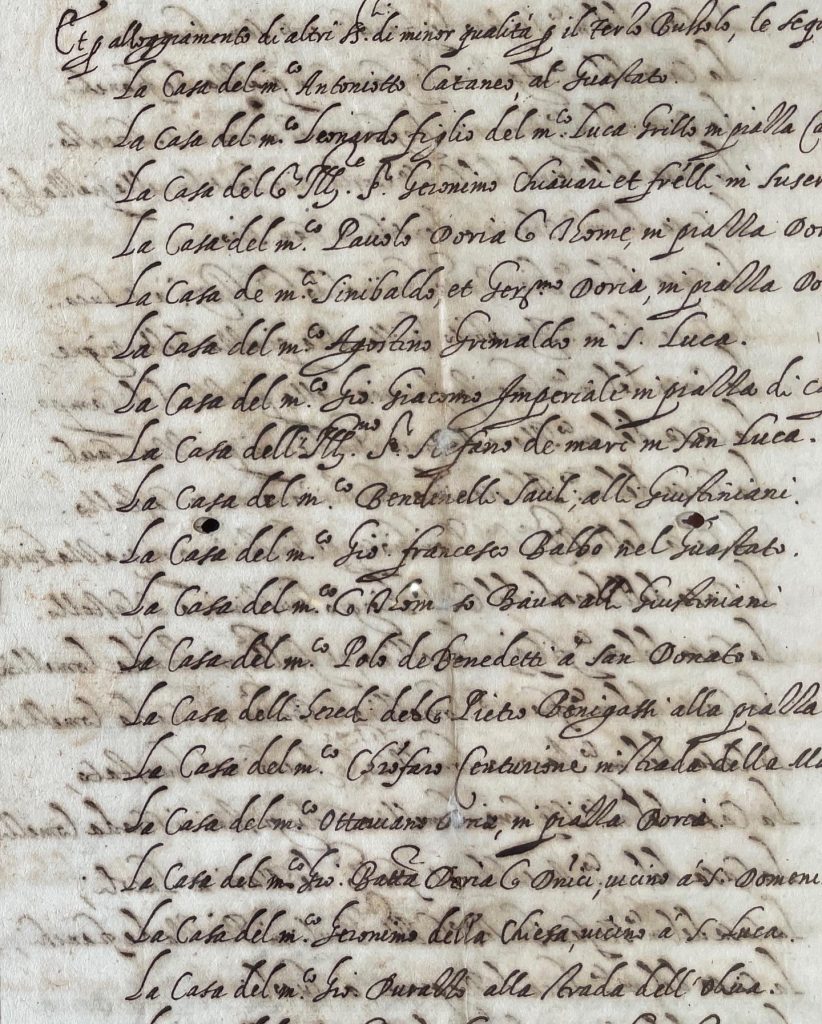 Et p alloggiamento di altri SS.ri di minor qualità p il Terzo Bussolo, le sequ
La Casa del m.co Antoniotto Cataneo, al Guastato.
La Casa del m.co Leonardo figlio del m.co Luca Grillo in piazza
La Casa del q. Ill.e S.r Geronimo Chiavari et frelli in Suser
La Casa del m.co Pauolo Doria q Thome, in piazza Dor
La Casa de m.ci Sinibaldo, et Ger.mo Doria, in piazza Do
La Casa del m.co Agostino Grimaldo in S. Luca.
La Casa del m.co Gio. Giacomo Imperiale in piazza di Ca
La Casa dell' Ill.mo S.r Stefano de mari in San Luca.
La Casa del m.co Bendinelli Sauli, alli Giustiniani.
La Casa del m.co Gio. francesco Balbo nel Guastato.
La Casa del m.co q Thom so Baua alli Giustiniani
La Casa del m.co Polo de Benedetti a San Donato
La Casa delli heredi del q. Pietro alla piazza
La Casa del m.co Chrofaro Centurione in strada della Ma
La Casa del m.co Ottauiano Doria, in piazza Doria.
La Casa del m.co Gio. Batta Doria q Dnici, uicino a S. Domeni
La Casa del m.co Geronimo della Chiesa, uicino a S. Luca.
La Casa del m.co Gio. Durazzo alla strada dell' Oliua.
La Casa del m.co